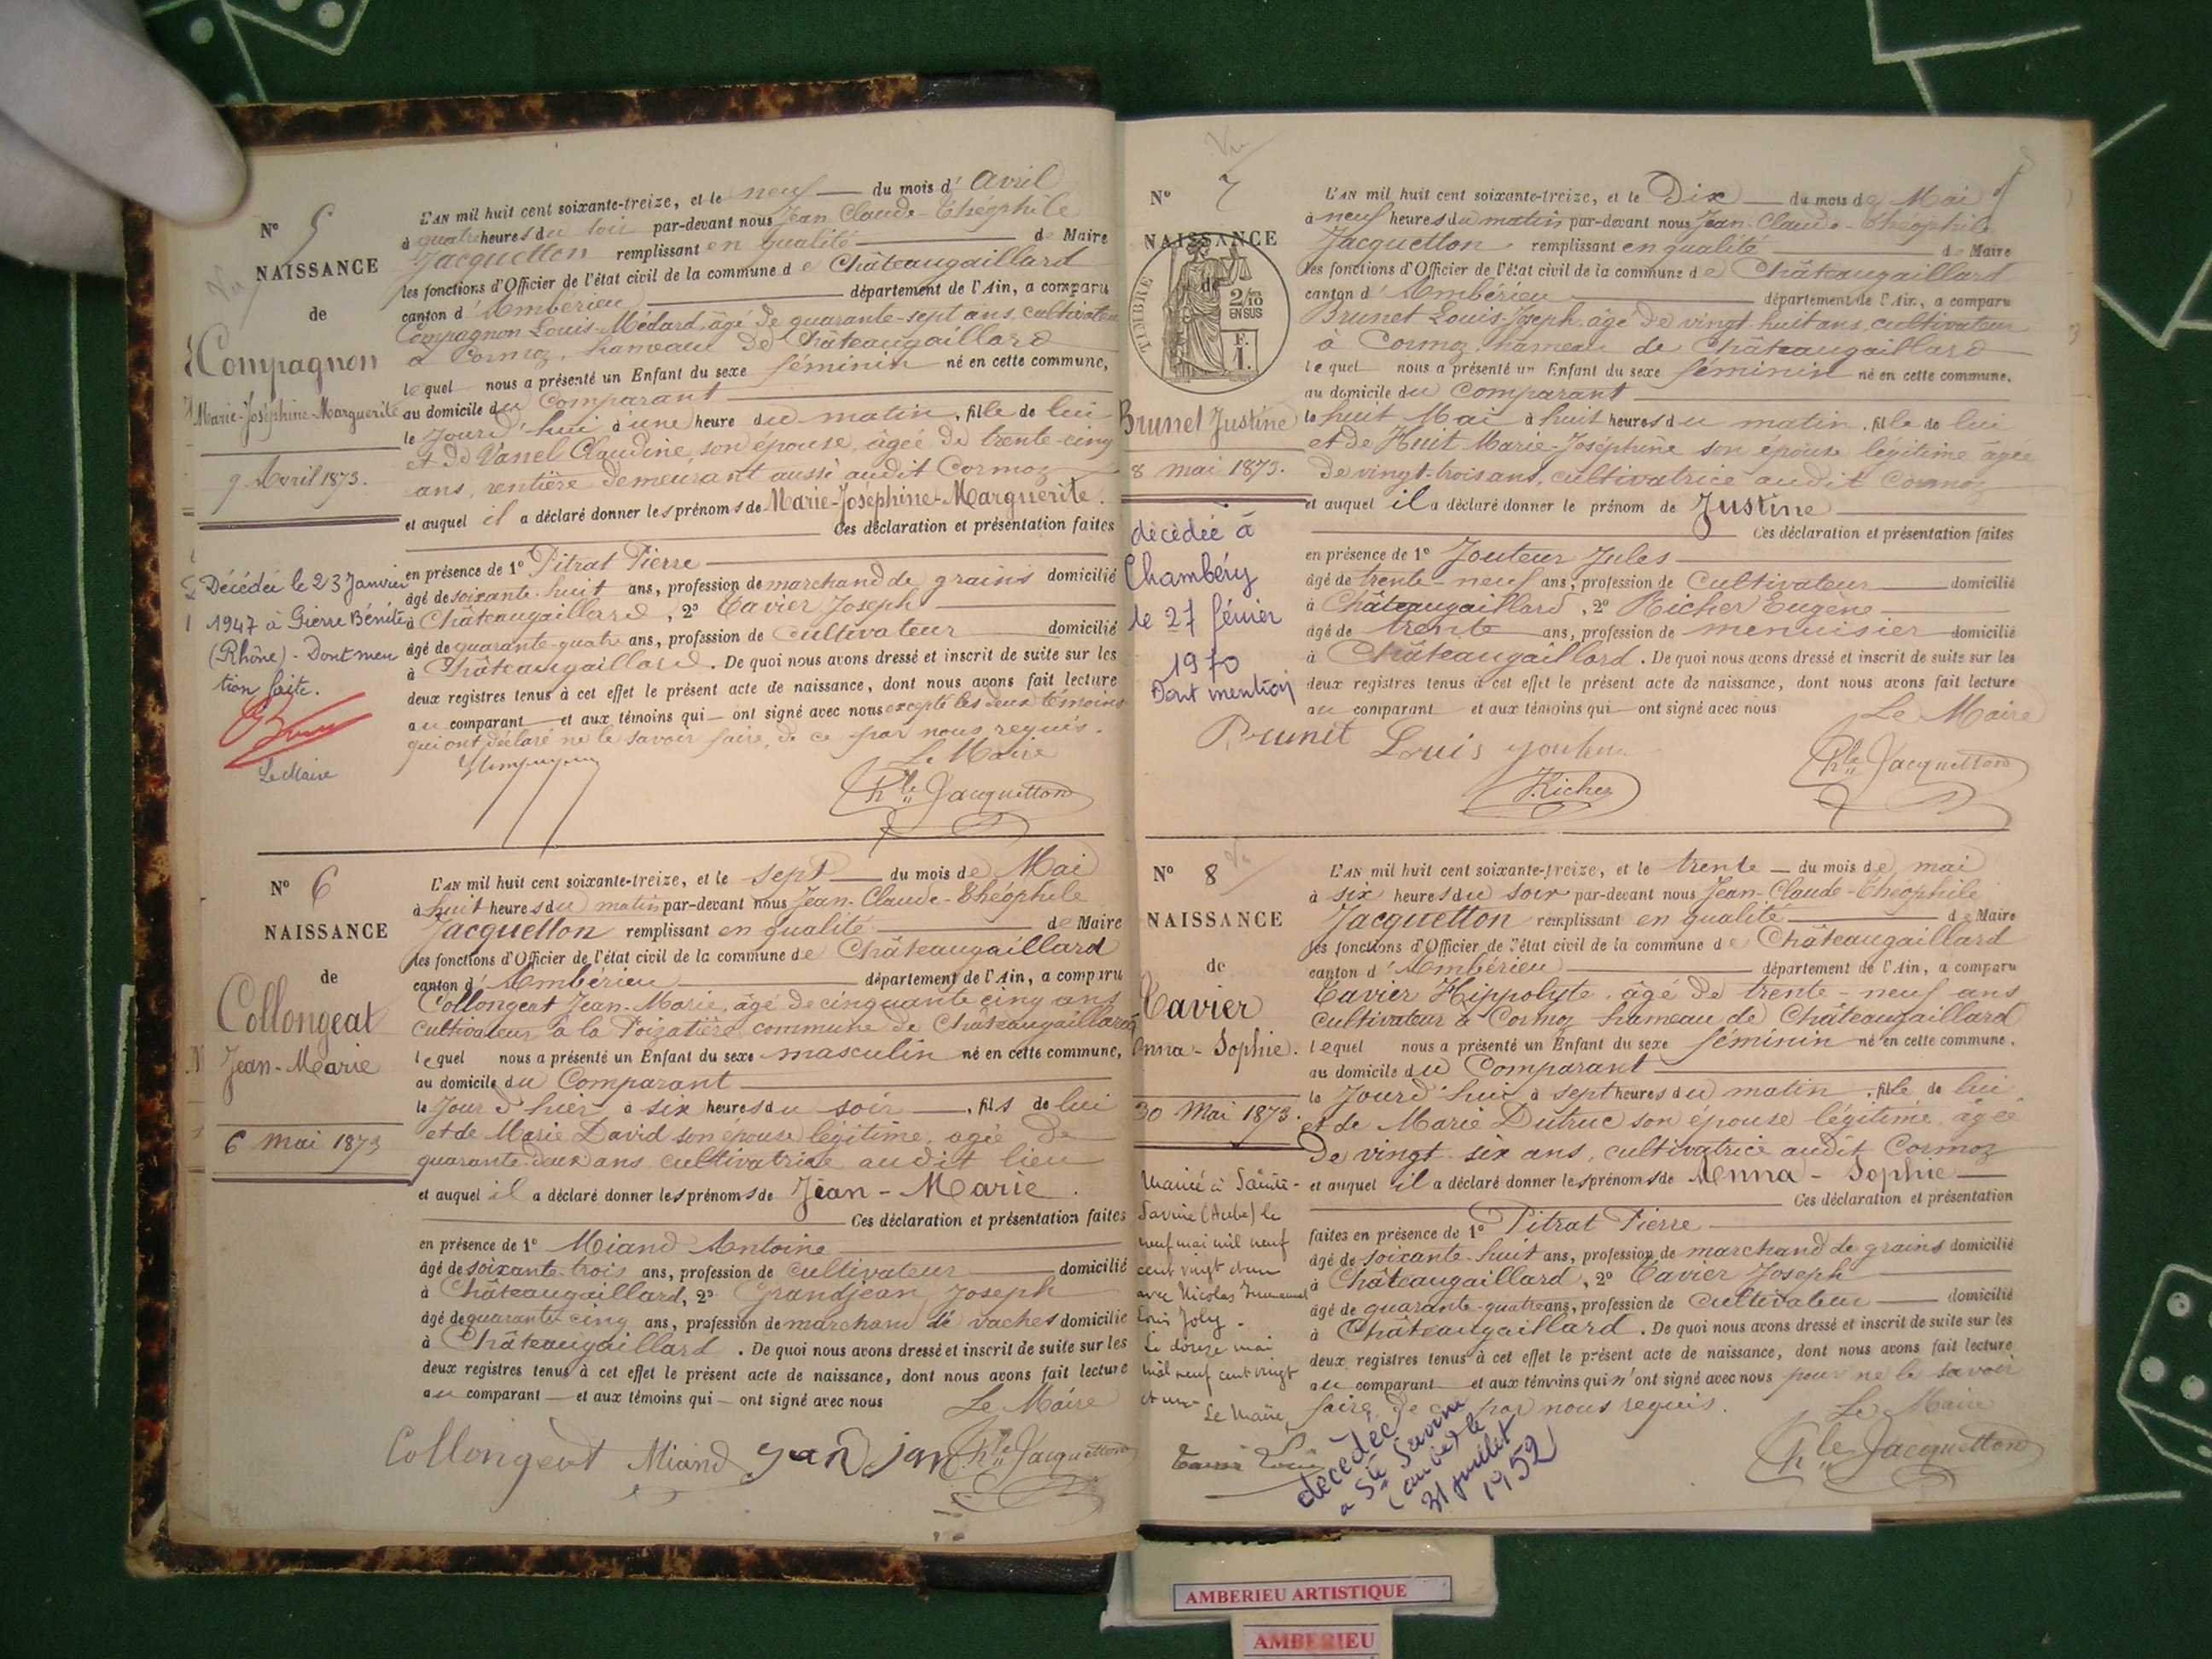 N° 5
NAISSANCE
de
Compagnon
Marie-Joséphine-Marguerite
9 Avril 1873.
Décédée le 23 Janvier
1947 à Pierre Bénite
(Rhône) - Dont men
tion faite.
Le Maire
L'AN mil huit cent soixante-treize, et le neuf du mois d'Avril
à quatre heures du soir par-devant nous Jean Claude-Théophile
Jacquetton remplissant en qualité de Maire
les fonctions d'Officier de l'état civil de la commune de Châteaugaillard
canton d'Ambérieu département de l'Ain, a comparu
Compagnon Louis-Médard, âgé de quarante-sept ans, cultivateur
à Cormoz, hameau de Châteaugaillard
lequel nous a présenté un Enfant du sexe féminin né en cette commune,
au domicile du Comparant
le jourd'hui à une heure du matin, fille de lui
et de Vanel Claudine, son épouse, âgée de trente-cinq
ans, rentière demeurant aussi audit Cormoz
et auquel il a déclaré donner les prénoms de Marie-Joséphine-Marguerite.
Ces déclaration et présentation faites
en présence de 1° Pitrat Pierre
âgé de soixante-huit ans, profession de marchand de grains domicilié
à Châteaugaillard, 2° Tavier Joseph
âgé de quarante-quatre ans, profession de cultivateur domicilié
à Châteaugaillard. De quoi nous avons dressé et inscrit de suite sur les
deux registres tenus à cet effet le présent acte de naissance, dont nous avons fait lecture
au comparant et aux témoins qui ont signé avec nous excepté les deux témoins
qui ont déclaré ne le savoir faire, de ce par nous requis.
Le Maire
Jacquetton
N° 6
NAISSANCE
de
Collongeat
Jean-Marie
6 mai 1873
L'AN mil huit cent soixante-treize, et le sept du mois de Mai
à huit heures du matin par-devant nous Jean-Claude-Théophile
Jacquetton remplissant en qualité de Maire
les fonctions d'Officier de l'état civil de la commune de Châteaugaillard
canton d'Ambérieu département de l'Ain, a comparu
Collongeat Jean-Marie, âgé de cinquante cinq ans
cultivateur à la Poizatière commune de Châteaugaillard
lequel nous a présenté un Enfant du sexe masculin né en cette commune,
au domicile du Comparant
le Jour d'hier à six heures du soir, fils de lui
et de Marie David son épouse légitime, agée de
quarante-deux ans cultivatrice audit lieu
et auquel il a déclaré donner les prénoms de Jean-Marie.
Ces déclaration et présentation faites
en présence de 1° Miand Antoine
âgé de soixante-trois ans, profession de cultivateur domicilié
à Châteaugaillard, 2° Grandjean Joseph
âgé de quarante cinq ans, profession de marchand de vaches domicilié
à Châteaugaillard. De quoi nous avons dressé et inscrit de suite sur les
deux registres tenus à cet effet le présent acte de naissance, dont nous avons fait lecture
au comparant et aux témoins qui ont signé avec nous
Le Maire
Collongeat Miand Jacquetton
Vu
N° 7
NAISSANCE
de
TIMBRE
2/10
EN SUS
F.
1.
Brunet Justine
8 mai 1873.
décédée à
Chambéry
le 27 février
1970
Dont mention
L'AN mil huit cent soixante-treize, et le Dix du mois de Mai
à neuf heures du matin par-devant nous Jean-Claude-Théophile
Jacquetton remplissant en qualité de Maire
les fonctions d'Officier de l'état civil de la commune de Châteaugaillard
canton d'Ambérieu département de l'Ain, a comparu
Brunet Louis-Joseph, âgé de vingt-huit ans, cultivateur
à Cormoz, hameau de Châteaugaillard
lequel nous a présenté un Enfant du sexe féminin né en cette commune.
au domicile du Comparant
le huit Mai à huit heures du matin, fille de lui
et de Huit Marie-Joséphine son épouse légitime âgée
de vingt-trois ans, cultivatrice audit Cormoz
et auquel il a déclaré donner le prénom de Justine
Ces déclaration et présentation faites
en présence de 1° Jouteur Jules
âgé de trente-neuf ans, profession de Cultivateur domicilié
à Châteaugaillard, 2° Richer Eugène
âgé de trente ans, profession de menuisier domicilié
à Châteaugaillard. De quoi nous avons dressé et inscrit de suite sur les
deux registres tenus à cet effet le présent acte de naissance, dont nous avons fait lecture
au comparant et aux témoins qui ont signé avec nous
Le Maire
Brunet Louis
Jacquetton
N° 8
NAISSANCE
de
Tavier
Anna-Sophie.
30 Mai 1873.
Mariée à Sainte-
Savine (Aube) le
neuf mai mil neuf
cent vingt et un
avec Nicolas
Louis Joly.
Le douze mai
mil neuf cent vingt
et un.
Le Maire,
L'AN mil huit cent soixante-treize, et le trente du mois de mai
à six heures du soir par-devant nous Jean-Claude-Théophile
Jacquetton remplissant en qualité de Maire
les fonctions d'Officier de l'état civil de la commune de Châteaugaillard
canton d'Ambérieu département de l'Ain, a comparu
Tavier Hippolyte, âgé de trente-neuf ans
cultivateur à Cormoz hameau de Châteaugaillard
lequel nous a présenté un Enfant du sexe féminin né en cette commune.
au domicile du Comparant
le Jourd'hui à sept heures du matin, fille de lui
et de Marie Dutruc son épouse légitime, âgée
de vingt-six ans, cultivatrice audit Cormoz
et auquel il a déclaré donner les prénoms de Anna-Sophie
Ces déclaration et présentation
faites en présence de 1° Pitrat Pierre
âgé de soixante-huit ans, profession de marchand de grains domicilié
à Châteaugaillard, 2° Tavier Joseph
âgé de quarante-quatre ans, profession de Cultivateur domicilié
à Châteaugaillard. De quoi nous avons dressé et inscrit de suite sur les
deux registres tenus à cet effet le présent acte de naissance, dont nous avons fait lecture
au comparant et aux témoins qui n'ont signé avec nous pour ne le savoir
faire, de ce par nous requis.
Le Maire
Jacquetton
décédée
à Ste Savine
(aube) le
31 juillet
1952
AMBERIEU ARTISTIQUE
AMBERIEU